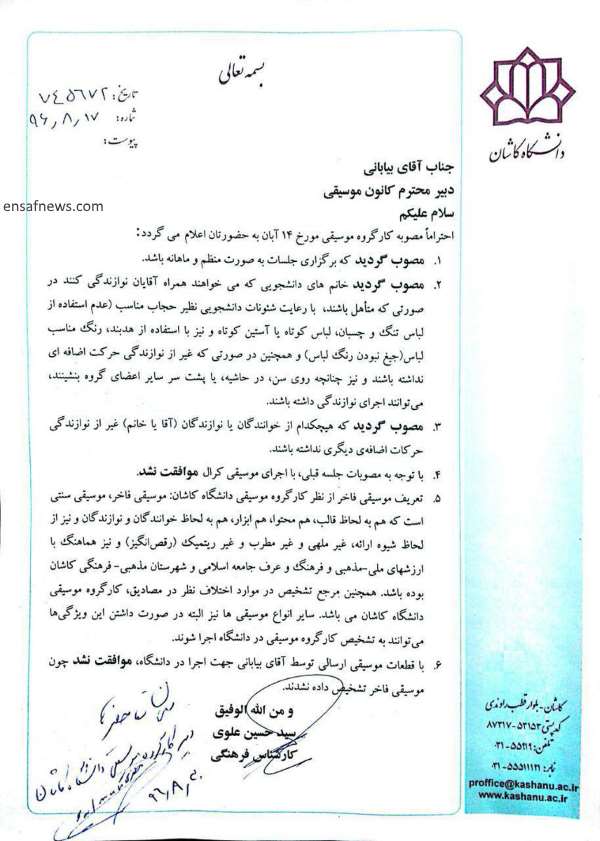 بسمه تعالی
تاریخ: ۷۴۵۶۷۲
شماره: ۹۶/۸/۱۷
پیوست:
دانشگاه کاشان
ensafnews.com
جناب آقای بیابانی
دبیر محترم کانون موسیقی
سلام علیکم
احتراماً مصوبه کارگروه موسیقی مورخ ۱۴ آبان به حضورتان اعلام می گردد:
۱. مصوب گردید که برگزاری جلسات به صورت منظم و ماهانه باشد.
۲. مصوب گردید خانم های دانشجویی که می خواهند همراه آقایان نوازندگی کنند در
صورتی که متأهل باشند، با رعایت شئونات دانشجویی نظیر حجاب مناسب (عدم استفاده از
لباس تنگ و چسبان، لباس کوتاه یا آستین کوتاه و نیز با استفاده از هدبند، رنگ مناسب
لباس(جیغ نبودن رنگ لباس) و همچنین در صورتی که غیر از نوازندگی حرکت اضافه ای
نداشته باشند و نیز چنانچه روی سن، در حاشیه، یا پشت سر سایر اعضای گروه بنشینند،
می‌توانند اجرای نوازندگی داشته باشند.
۳. مصوب گردید که هیچکدام از خوانندگان یا نوازندگان (آقا یا خانم) غیر از نوازندگی
حرکات اضافه‌ی دیگری نداشته باشند.
۴. با توجه به مصوبات جلسه قبلی، با اجرای موسیقی کرال موافقت نشد.
۵. تعریف موسیقی فاخر از نظر کارگروه موسیقی دانشگاه کاشان: موسیقی فاخر، موسیقی سنتی
است که هم به لحاظ قالب، هم محتوا، هم ابزار، هم به لحاظ خوانندگان و نوازندگان و نیز از
لحاظ شیوه ارائه، غیر ملهی و غیر مطرب و غیر ریتمیک (رقص‌انگیز) و نیز هماهنگ با
ارزشهای ملی-مذهبی و فرهنگ و عرف جامعه اسلامی و شهرستان مذهبی-فرهنگی کاشان
بوده باشد. همچنین مرجع تشخیص در موارد اختلاف نظر در مصادیق، کارگروه موسیقی
دانشگاه کاشان می باشد. سایر انواع موسیقی ها نیز البته در صورت داشتن این ویژگی‌ها
می‌توانند به تشخیص کارگروه موسیقی در دانشگاه اجرا شوند.
۶. با قطعات موسیقی ارسالی توسط آقای بیابانی جهت اجرا در دانشگاه، موافقت نشد چون
موسیقی فاخر تشخیص داده نشدند.
و من الله الوفیق
سید حسین علوی
کارشناس فرهنگی
دبیر کارگروه موسیقی دانشگاه کاشان
کاشان- بلوار قطب راوندی
کدپستی: ۵۳۱۵۳-۸۷۳۱۷
تلفن: ۵۵۹۱۹-۰۳۱
نمابر: ۵۵۵۱۱۱۲۱-۰۳۱
proffice@kashanu.ac.ir
www.kashanu.ac.ir